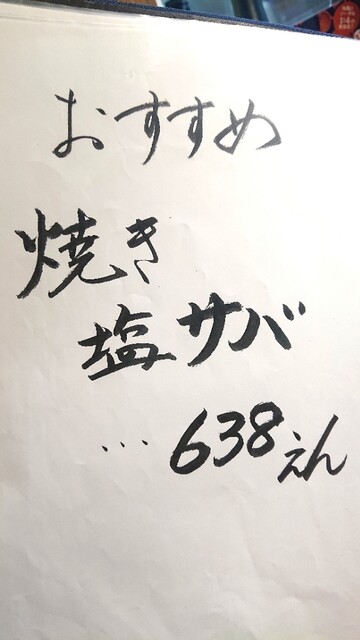 おすすめ
焼き
塩サバ
... 638えん